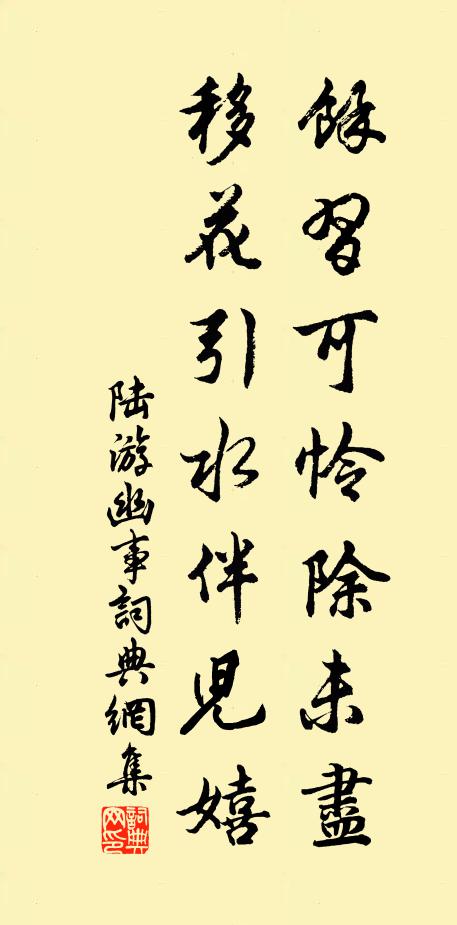 餘習可怜除未盡
移花引水伴児嬉
陆游幽事詞典網集
詞典网印